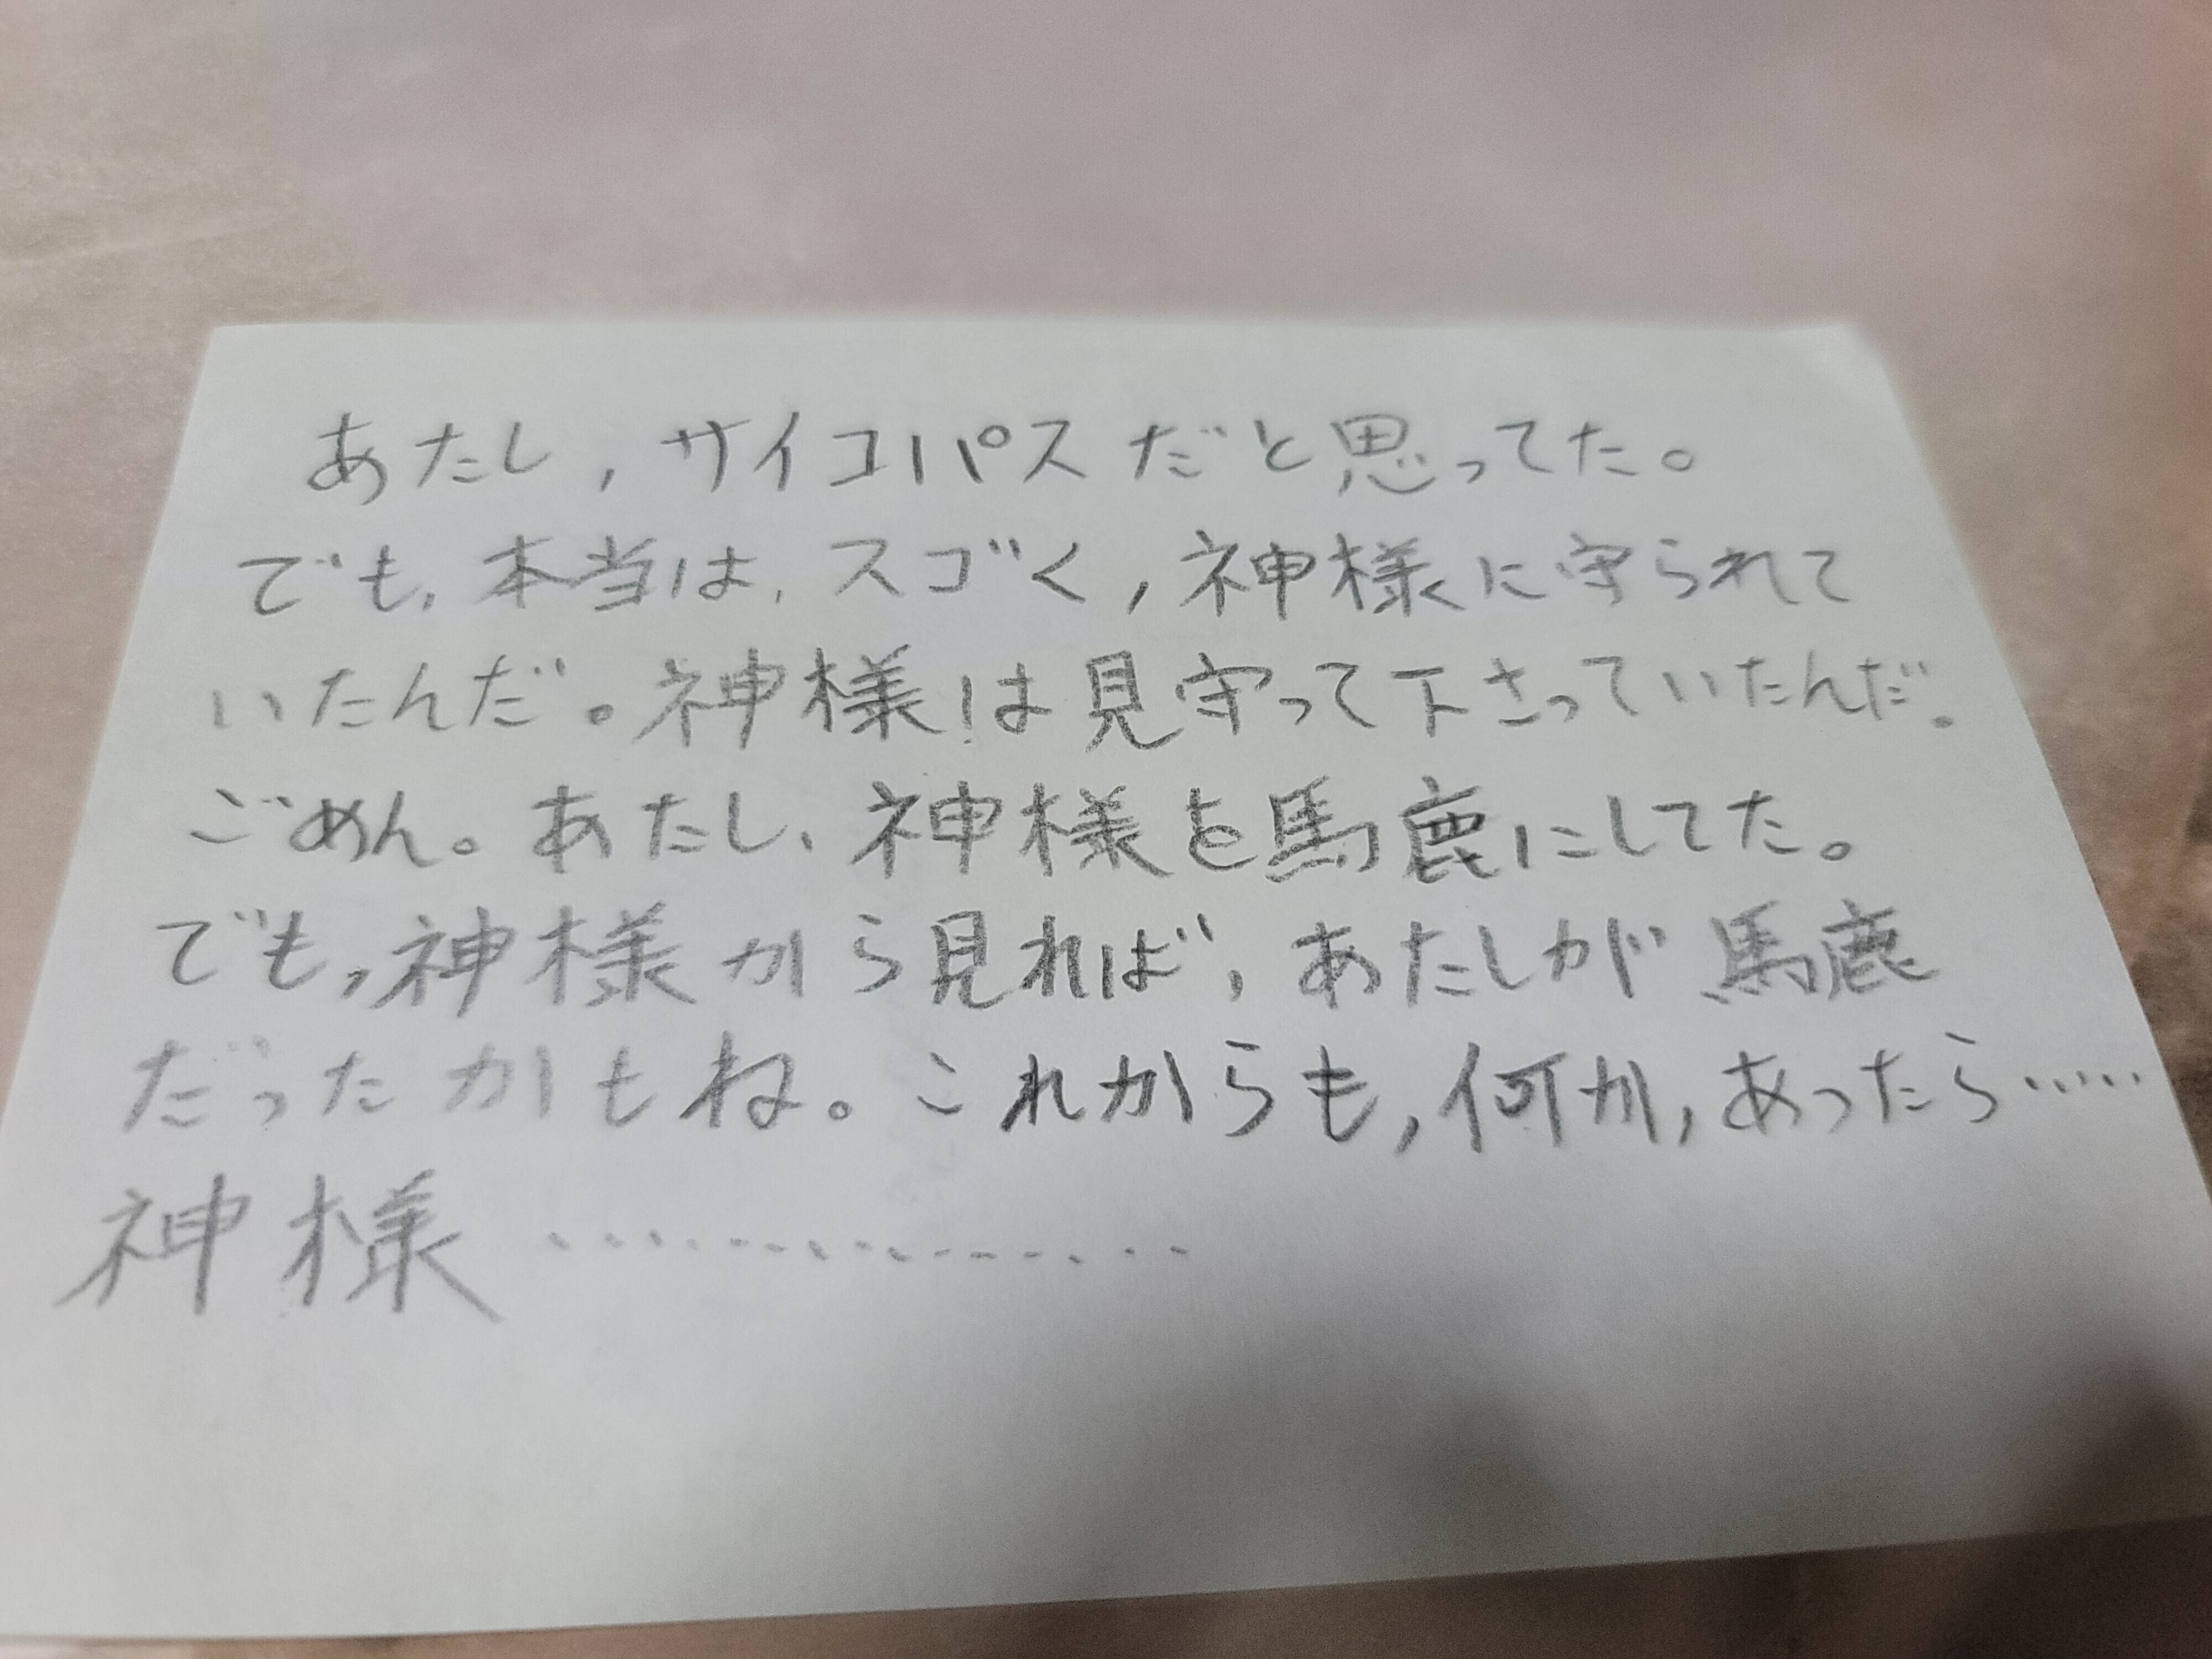 あたし,サイコパスだと思ってた。
でも,本当は,スゴく,神様に守られて
いたんだ。神様は見守って下さっていたんだ。
ごめん。あたし、神様を馬鹿にしてた。
でも,神様から見れば,あたしが馬鹿
だったかもね。これからも,何か,あったら……
神様………………